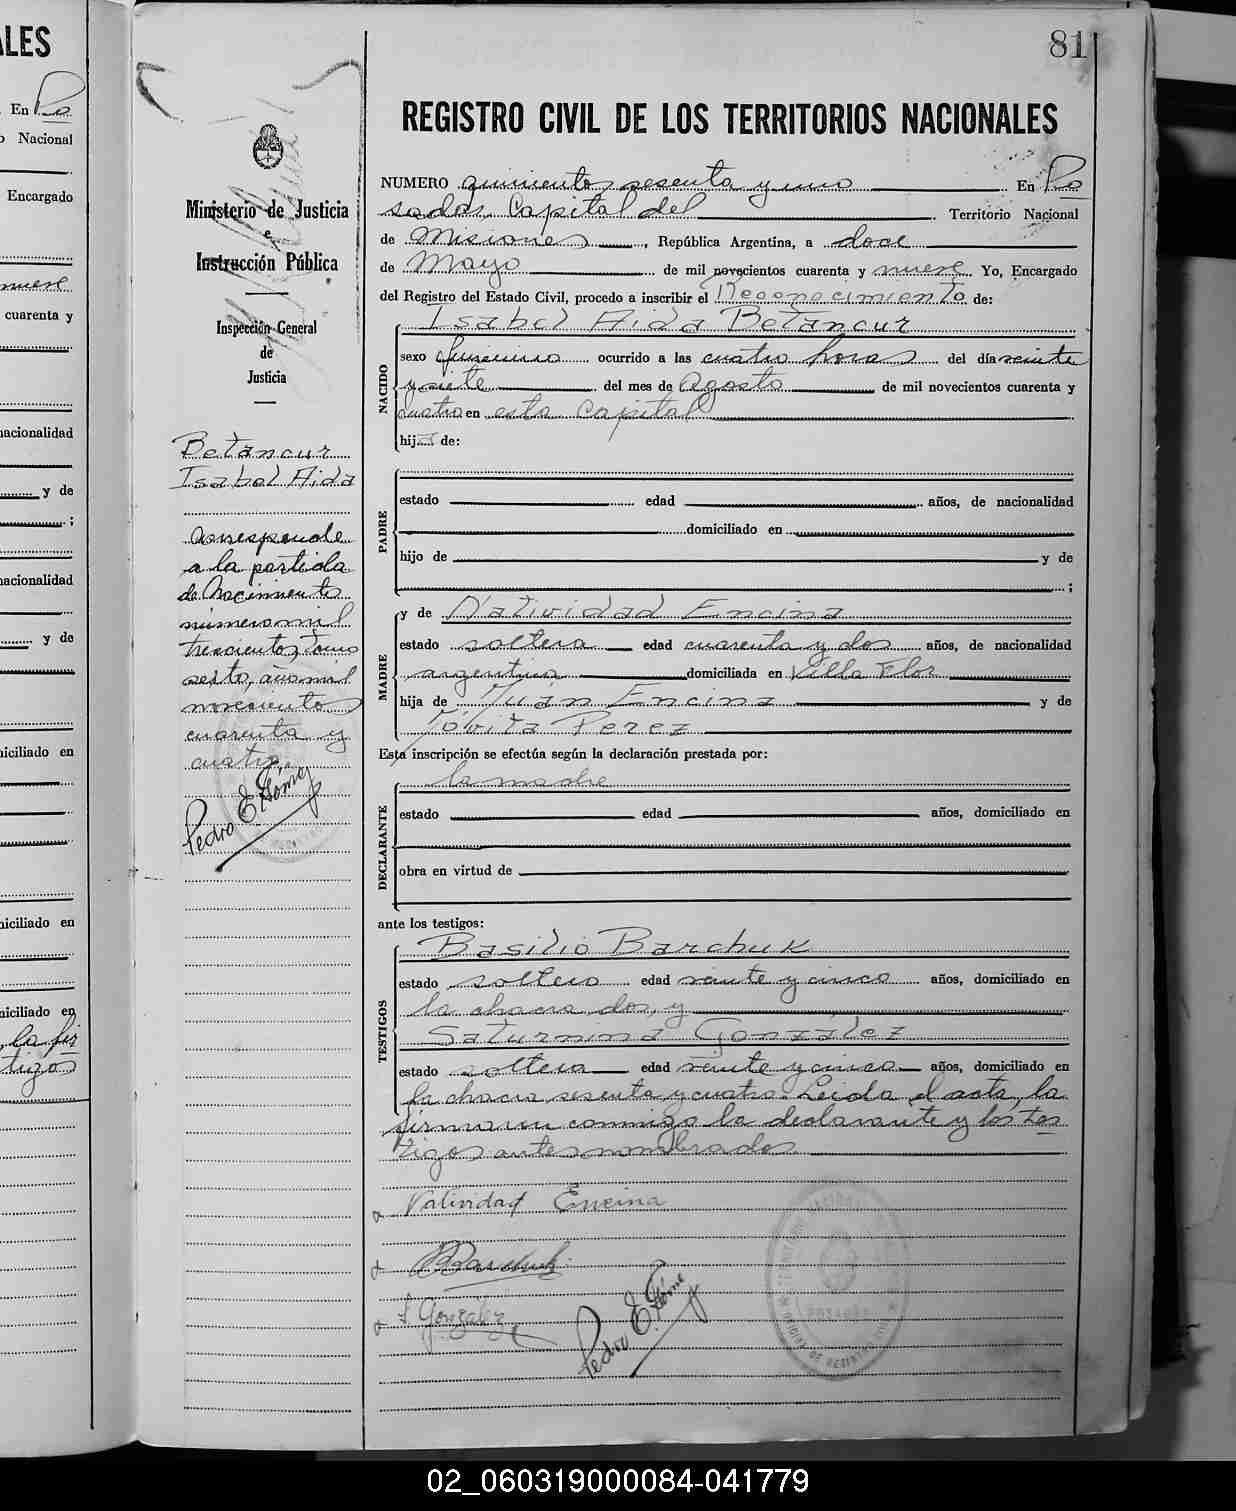 81
REGISTRO CIVIL DE LOS TERRITORIOS NACIONALES
NUMERO quinientos sesenta y uno En Po
sadas, Capital del Territorio Nacional
de Misiones, República Argentina, a doce
de Mayo de mil novecientos cuarenta y nueve Yo, Encargado
del Registro del Estado Civil, procedo a inscribir el Reconocimiento de:
Isabel Aida Betancur
NACIDO
sexo femenino ocurrido a las cuatro horas del día veinte
y siete del mes de Agosto de mil novecientos cuarenta y
cuatro en esta capital
hija de:
PADRE
estado edad años, de nacionalidad
domiciliado en
hijo de y de
;
MADRE
y de Natividad Encina
estado soltera edad cuarenta y dos años, de nacionalidad
argentina domiciliada en Villa Flor
hija de Juan Encina y de
Tovita Perez
Esta inscripción se efectúa según la declaración prestada por:
la madre
DECLARANTE
estado edad años, domiciliado en
obra en virtud de
ante los testigos:
TESTIGOS
Basilio Barchuk
estado soltero edad veinte y cinco años, domiciliado en
la chacra dos, y
Saturnina González
estado soltera edad veinte y cinco años, domiciliado en
la chacra sesenta y cuatro. Leida el acta, la
firmaron conmigo la declarante y los tes
tigos antes nombrados
Natividad Encina
Barchuk
S González
Pedro E. Gómez
Ministerio de Justicia
e
Instrucción Pública
Inspección General
de
Justicia
Betancur
Isabel Aida
Corresponde
a la partida
de Nacimiento
número mil
trescientos, tomo
sexto, año mil
novecientos
cuarenta y
cuatro
Pedro E. Gómez
ALES
En Po
Nacional
Encargado
nueve
cuarenta y
nacionalidad
y de
;
nacionalidad
y de
domiciliado en
domiciliado en
domiciliado en
la fir
tigos
02_060319000084-041779